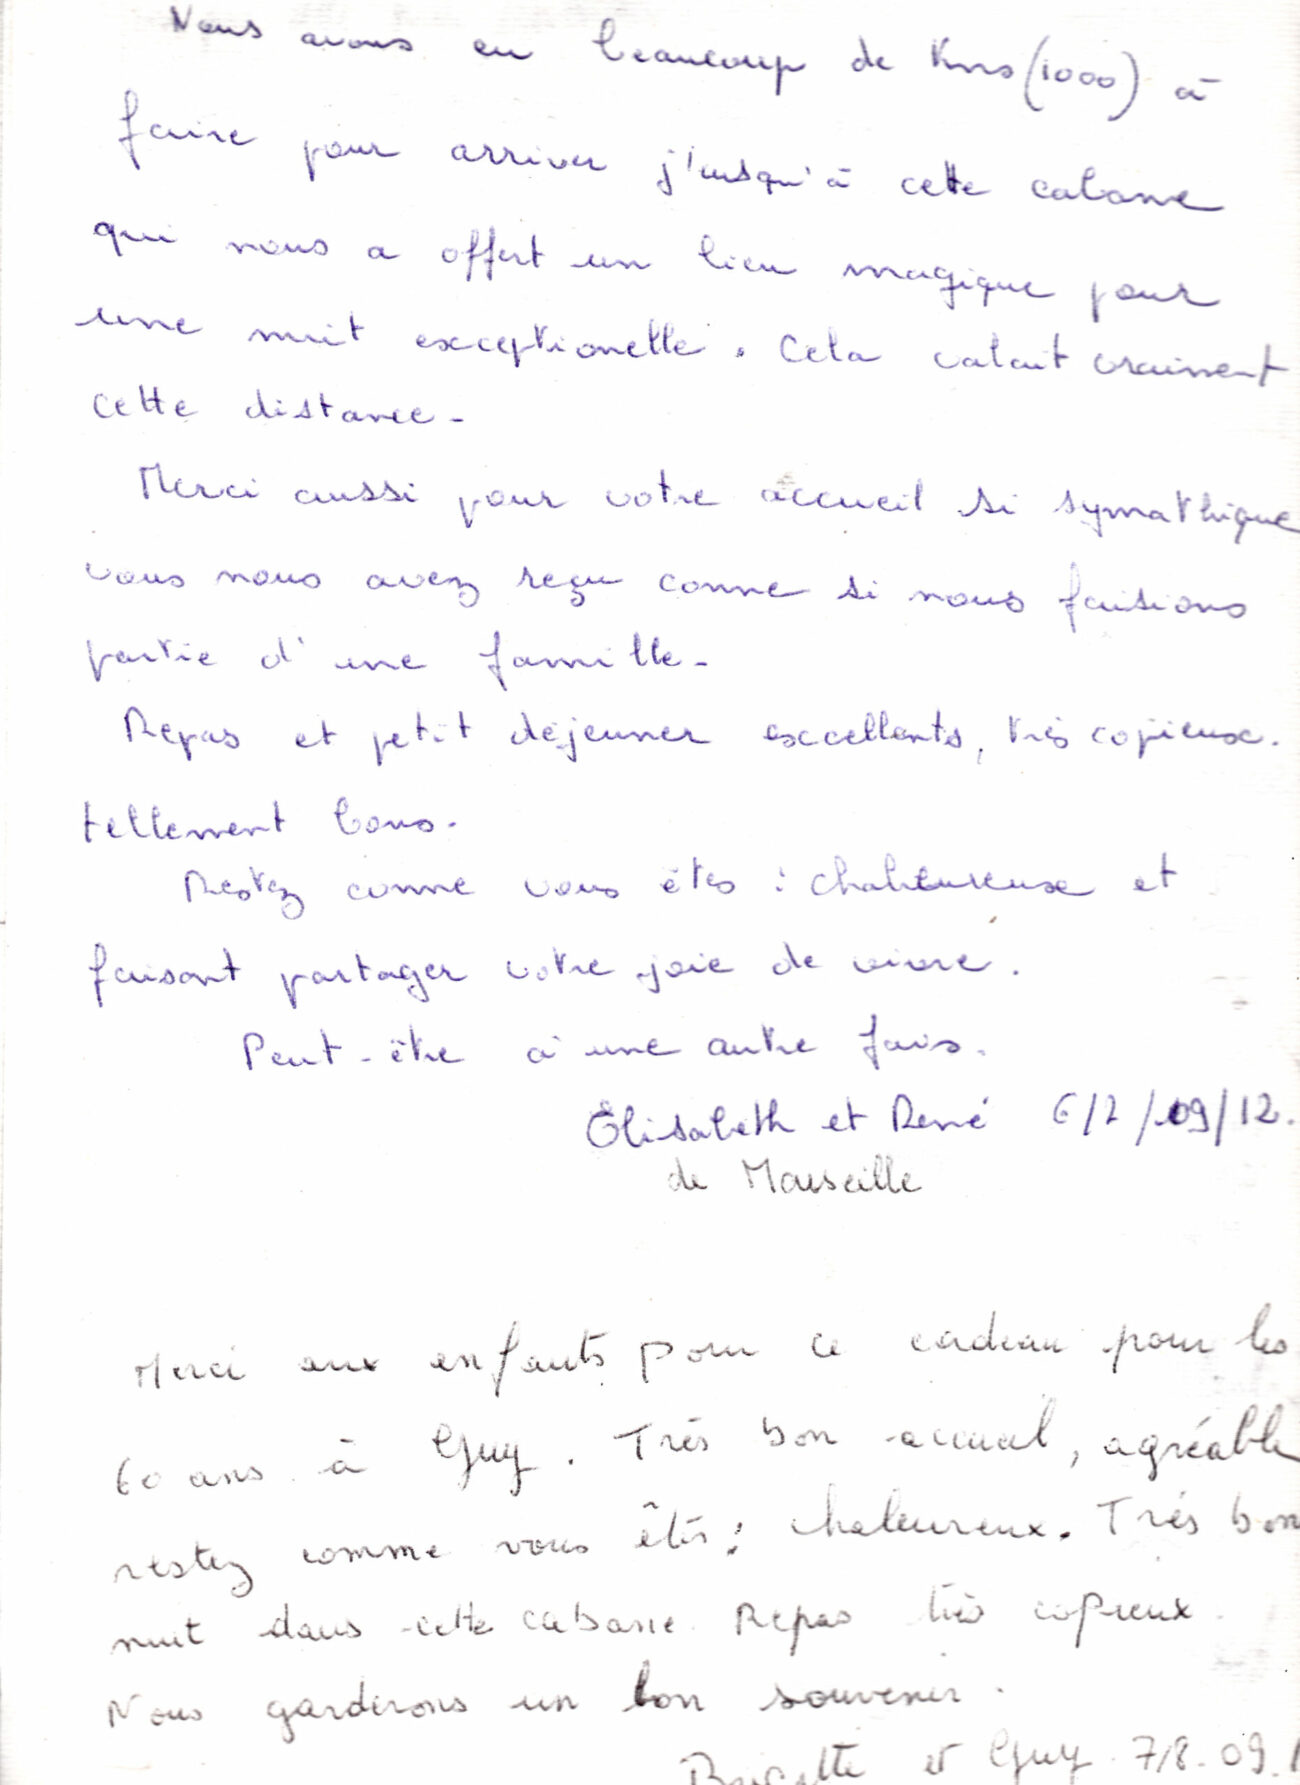 Nous avons eu beaucoup de Kms (1000) à
faire pour arriver j'usqu'à cette cabane
qui nous a offert un lieu magique pour
une nuit exceptionelle. Cela valait vraiment
cette distance.
Merci aussi pour votre accueil si symathique
vous nous avez reçu comme si nous faisions
partie d'une famille.
Repas et petit déjeuner excellents, très copieux.
tellement bons.
Restez comme vous êtes : chaleureuse et
faisant partager votre joie de vivre.
Peut-être à une autre fois.
Elisabeth et René 6/7/09/12.
de Marseille
Merci aux enfants pour ce cadeau pour les
60 ans à Guy. Trés bon accueil, agréable
restez comme vous êtes : chaleureux. Trés bon
nuit dans cette cabane. Repas très copieux.
Nous garderons un bon souvenir.
et Guy 7/8.09.1